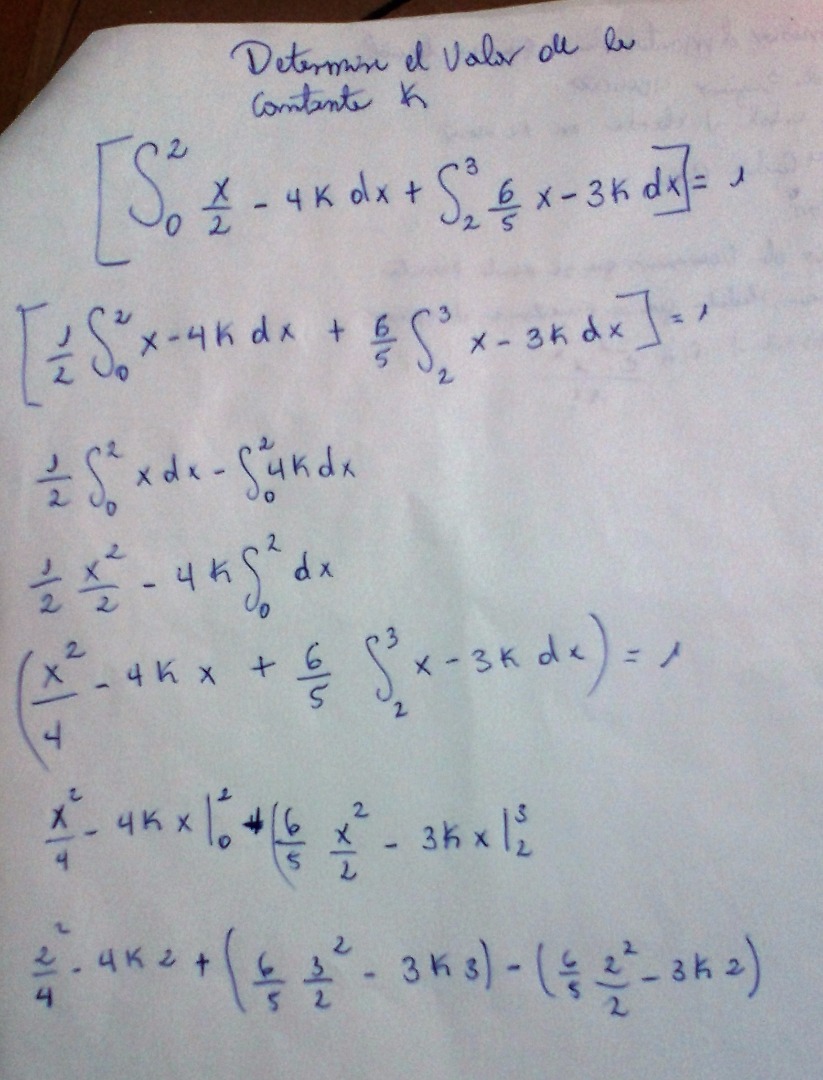 Determine el valor de la
Constante K
[∫₀² x/2 - 4K dx + ∫₂³ 6/5 x - 3K dx] = 1
[1/2 ∫₀² x - 4K dx + 6/5 ∫₂³ x - 3K dx] = 1
1/2 ∫₀² x dx - ∫₀² 4K dx
1/2 x²/2 - 4K ∫₀² dx
(x²/4 - 4K x + 6/5 ∫₂³ x - 3K dx) = 1
x²/4 - 4K x |₀² + (6/5 x²/2 - 3K x |₂³
2²/4 - 4K 2 + (6/5 3²/2 - 3K 3) - (6/5 2²/2 - 3K 2)